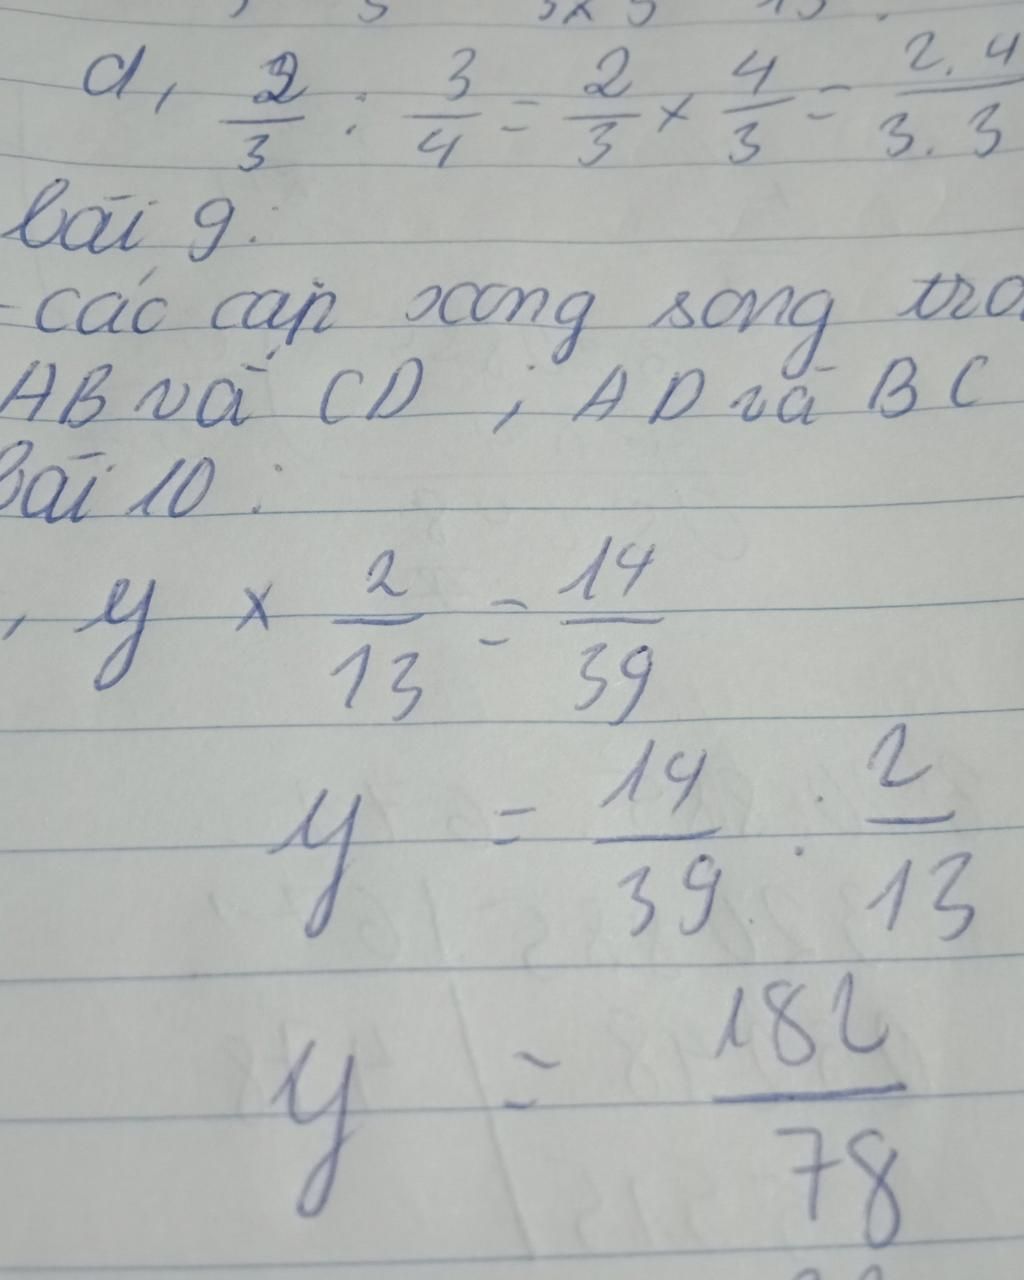 d, 2/3 : 3/4 = 2/3 × 4/3 = 2.4/3.3
bài 9:
- các cặp xong song tro
AB và CD ; AD và BC
Bài 10:
, y × 2/13 = 14/39
y = 14/39 : 2/13
y = 182/78